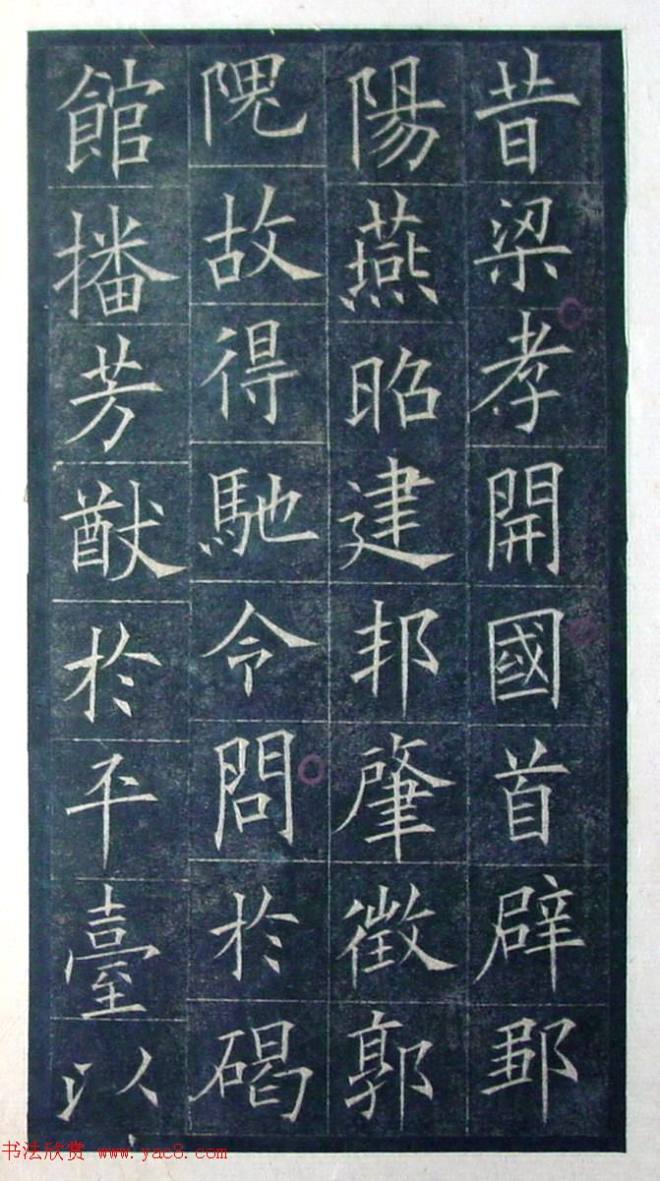 昔梁孝開國首辟鄒
陽燕昭建邦肇徵郭
隗故得馳令問於碣
館播芳猷於平臺以
书法欣赏 www.yac8.com